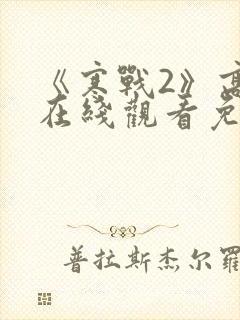 《寒戰2》高
在綫觀看免
普拉斯杰尔羅